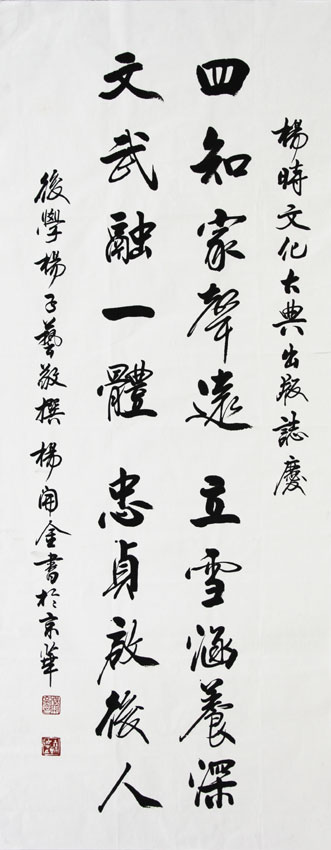 楊時文化大典出版誌慶
四知家聲遠立雪涵養深
文武融一體忠貞啟後人
後學楊子藝敬撰楊開金書於京華